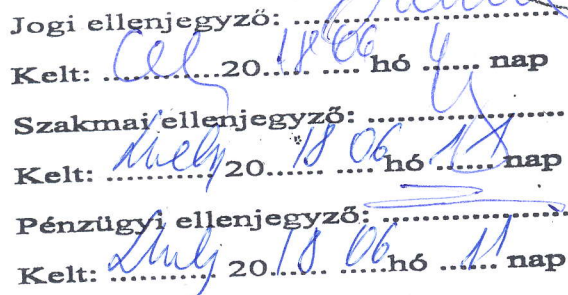 Jogi ellenjegyző: ....................
Kelt: ............20 18 06 hó ...... nap
Szakmai ellenjegyző: ....................
Kelt: ............ 20 18 06 hó 11 nap
Pénzügyi ellenjegyző: ....................
Kelt: ............ 20 18 06 hó 11 nap